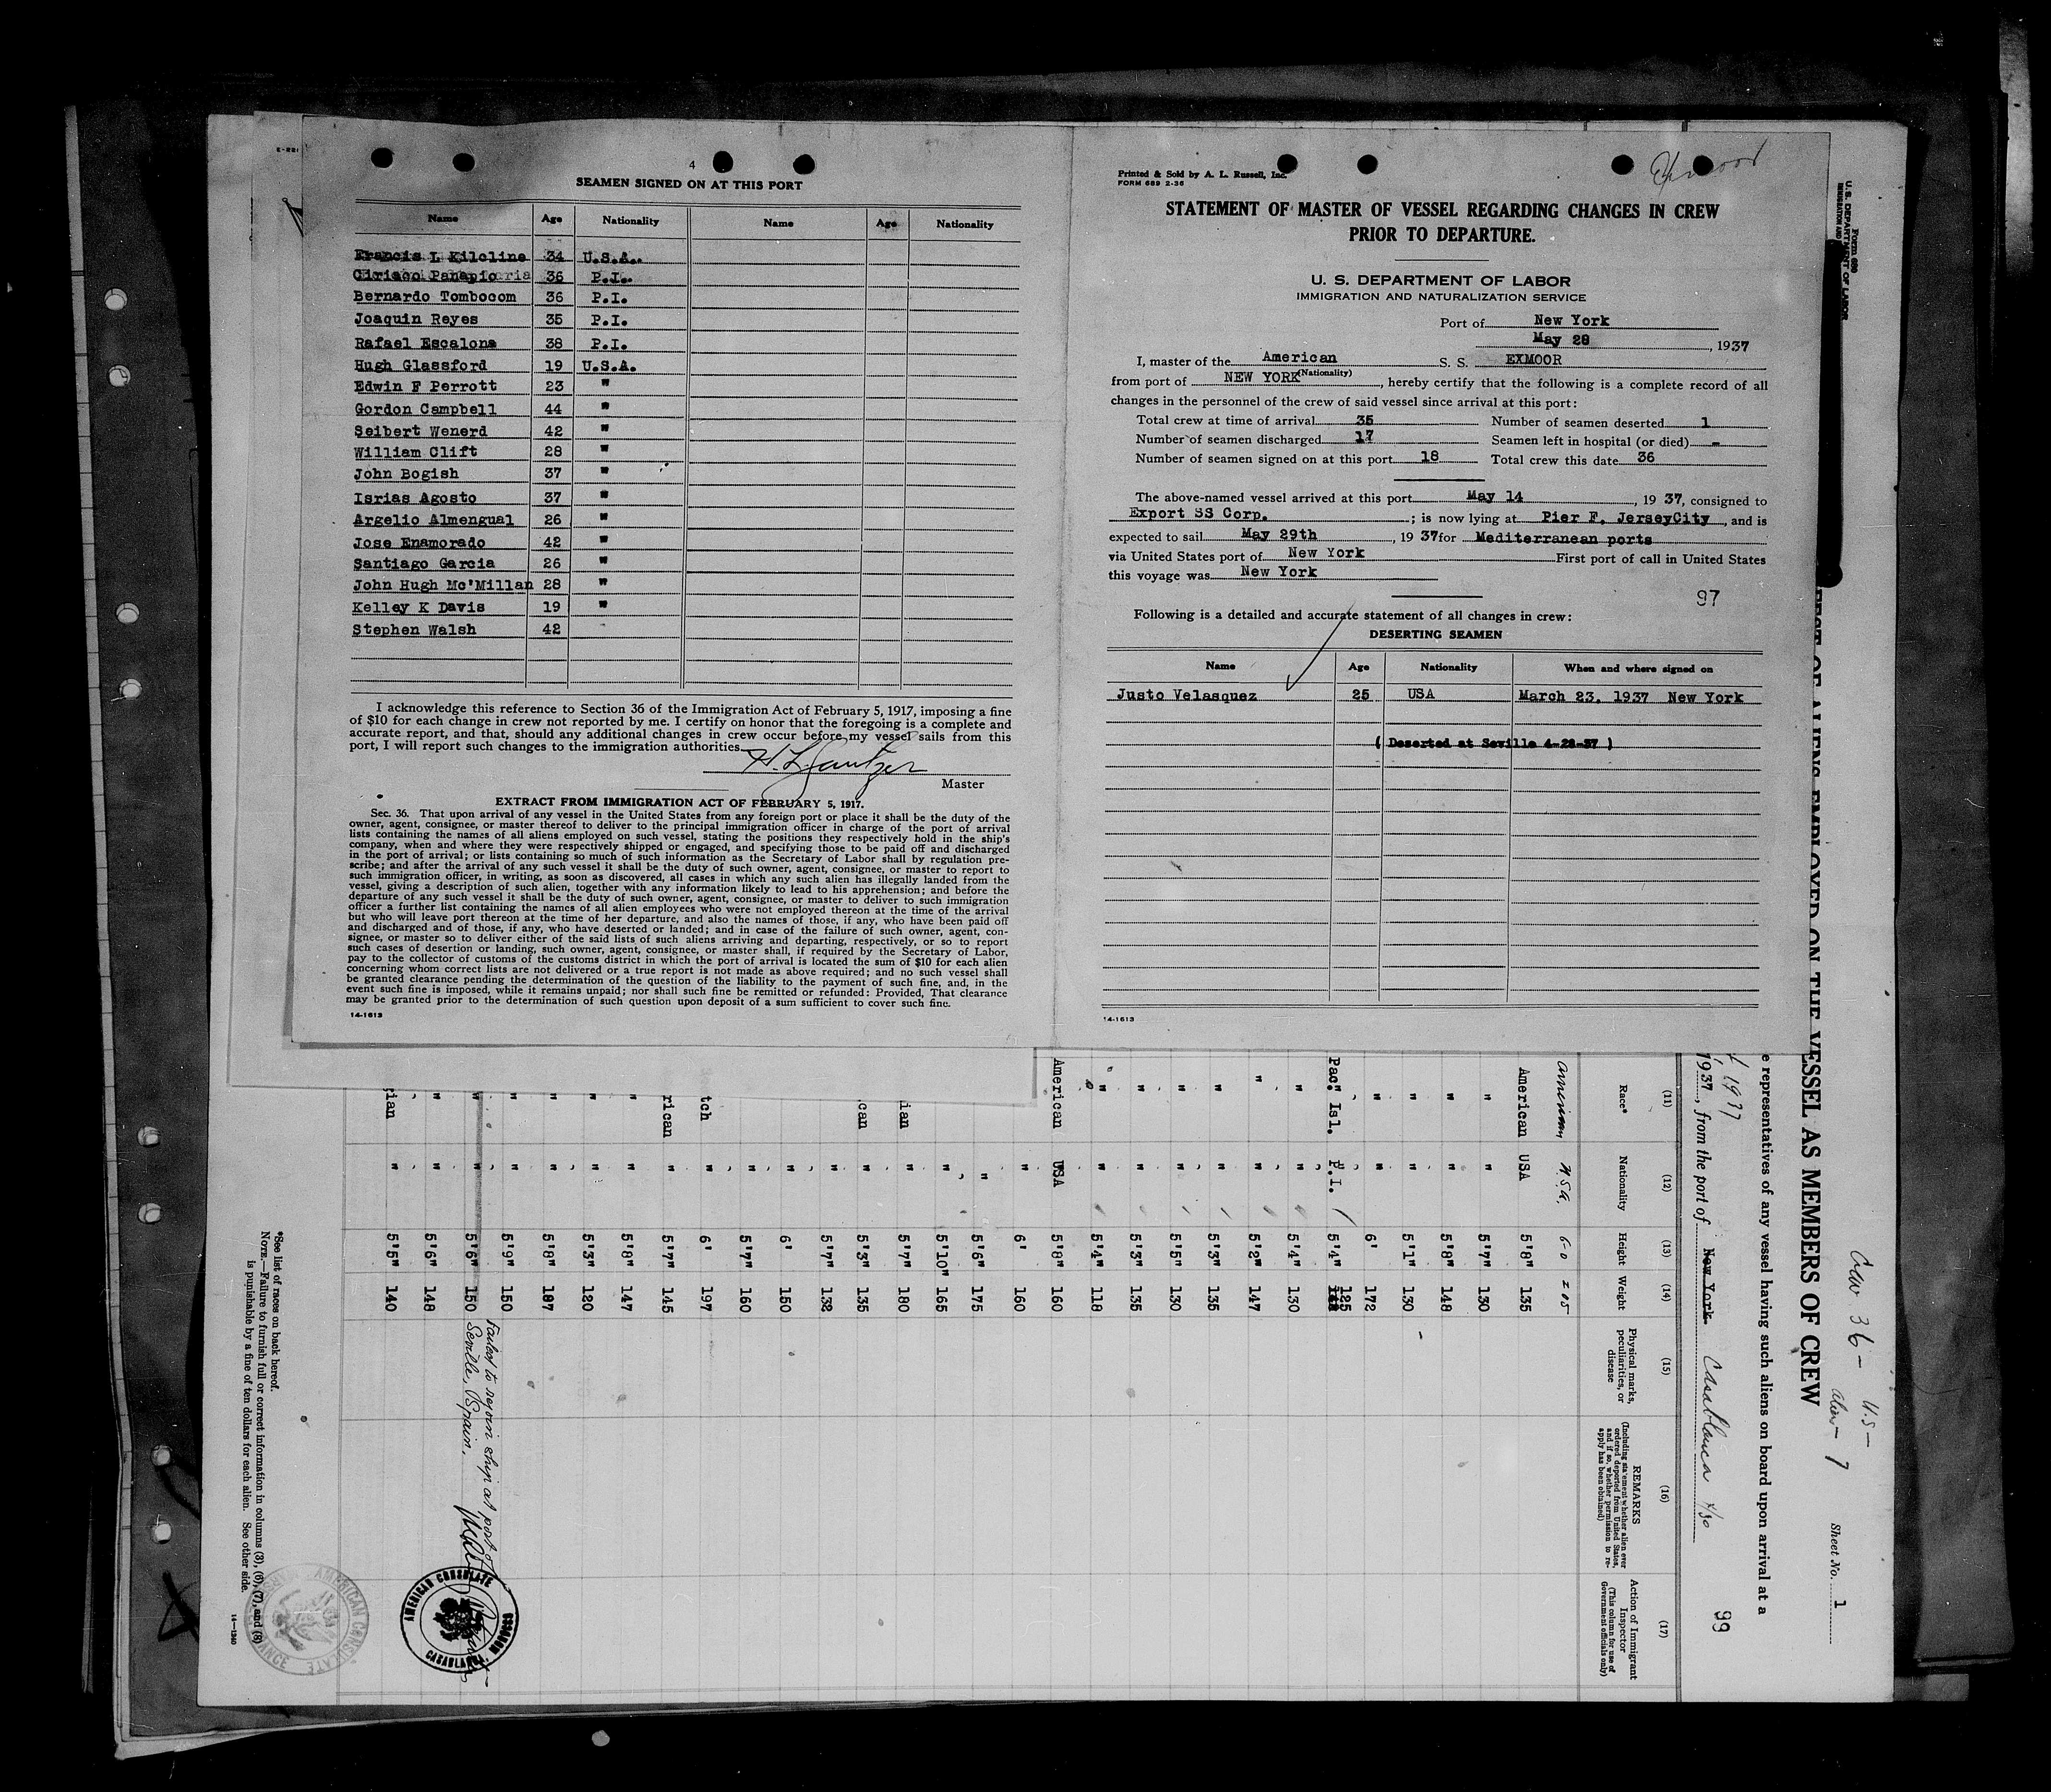 4
SEAMEN SIGNED ON AT THIS PORT
Name Age Nationality Name Age Nationality
Francis L Kilcline 34 U.S.A.
Ciriaco 36 P.I.
Bernardo Tombocom 36 P.I.
Joaquin Reyes 35 P.I.
Rafael Escalona 38 P.I.
Hugh Glassford 19 U.S.A.
Edwin F Perrott 23 "
Gordon Campbell 44 "
Seibert Wenerd 42 "
William Clift 28 "
John Bogish 37 "
Isrias Agosto 37 "
Argelio Almengual 26 "
Jose Enamorado 42 "
Santiago Garcia 26 "
John Hugh Mc'Millan 28 "
Kelley K Davis 19 "
Stephen Walsh 42
I acknowledge this reference to Section 36 of the Immigration Act of February 5, 1917, imposing a fine
of $10 for each change in crew not reported by me. I certify on honor that the foregoing is a complete and
accurate report, and that, should any additional changes in crew occur before my vessel sails from this
port, I will report such changes to the immigration authorities.
Master
EXTRACT FROM IMMIGRATION ACT OF FEBRUARY 5, 1917.
Sec. 36. That upon arrival of any vessel in the United States from any foreign port or place it shall be the duty of the
owner, agent, consignee, or master thereof to deliver to the principal immigration officer in charge of the port of arrival
lists containing the names of all aliens employed on such vessel, stating the positions they respectively hold in the ship's
company, when and where they were respectively shipped or engaged, and specifying those to be paid off and discharged
in the port of arrival; or lists containing so much of such information as the Secretary of Labor shall by regulation pre-
scribe; and after the arrival of any such vessel it shall be the duty of such owner, agent, consignee, or master to report to
such immigration officer, in writing, as soon as discovered, all cases in which any such alien has illegally landed from the
vessel, giving a description of such alien, together with any information likely to lead to his apprehension; and before the
departure of any such vessel it shall be the duty of such owner, agent, consignee, or master to deliver to such immigration
officer a further list containing the names of all alien employees who were not employed thereon at the time of the arrival
but who will leave port thereon at the time of her departure, and also the names of those, if any, who have been paid off
and discharged and of those, if any, who have deserted or landed; and in case of the failure of such owner, agent, con-
signee, or master so to deliver either of the said lists of such aliens arriving and departing, respectively, or so to report
such cases of desertion or landing, such owner, agent, consignee, or master shall, if required by the Secretary of Labor,
pay to the collector of customs of the customs district in which the port of arrival is located the sum of $10 for each alien
concerning whom correct lists are not delivered or a true report is not made as above required; and no such vessel shall
be granted clearance pending the determination of the question of the liability to the payment of such fine, and, in the
event such fine is imposed, while it remains unpaid; nor shall such fine be remitted or refunded: Provided, That clearance
may be granted prior to the determination of such question upon deposit of a sum sufficient to cover such fine.
14-1613
Exmoor
Printed & Sold by A. L. Russell, Inc.
FORM 689 2-36
STATEMENT OF MASTER OF VESSEL REGARDING CHANGES IN CREW
PRIOR TO DEPARTURE.
U. S. DEPARTMENT OF LABOR
IMMIGRATION AND NATURALIZATION SERVICE
Port of New York
May 28, 1937
I, master of the American S. S. EXMOOR
(Nationality)
from port of NEW YORK, hereby certify that the following is a complete record of all
changes in the personnel of the crew of said vessel since arrival at this port:
Total crew at time of arrival 35 Number of seamen deserted 1
Number of seamen discharged 17 Seamen left in hospital (or died) -
Number of seamen signed on at this port 18 Total crew this date 36
The above-named vessel arrived at this port May 14, 1937, consigned to
Export SS Corp. ; is now lying at Pier F, JerseyCity, and is
expected to sail May 29th, 1937 for Mediterranean ports
via United States port of New York First port of call in United States
this voyage was New York
97
Following is a detailed and accurate statement of all changes in crew:
DESERTING SEAMEN
Name Age Nationality When and where signed on
Justo Velasquez 25 USA March 23, 1937 New York
( Deserted at Seville 4-28-37 )
14-1613
Form 680
U. S. DEPARTMENT OF LABOR
Crew 36 - U.S -
alien - 7
Sheet No. 1
LIST OF ALIENS EMPLOYED ON THE VESSEL AS MEMBERS OF CREW
e representatives of any vessel having such aliens on board upon arrival at a
1937, from the port of New York Casablanca 4/30
99
(11) (12) (13) (14) (15) (16) (17)
Race* Nationality Height Weight Physical marks, peculiarities, or disease REMARKS (Including statement whether alien ever ordered deported from United States, and if so, whether permission to re-apply has been obtained) Action of Immigrant Inspector (This column for use of Government officials only)
American U.S.A. 6-0 205
American USA 5'8" 135
" " 5'7" 130
" " 5'8" 148
" " 5'1" 130
" " 6' 172
Pac. Isl. P.I. 5'4" 125
" " 5'4" 130
" " 5'2" 147
" " 5'3" 135
" " 5'5" 130
" " 5'3" 135
" " 5'4" 118
American USA 5'8" 160
" 6' 160
" 5'6" 175
" 5'10" 165
ian " 5'7" 180
can " 5'3" 135
" 5'7" 132
" 6' 150
" 5'7" 160
tch " 6' 197
rican " 5'7" 145
" " 5'8" 147
" " 5'3" 180
" " 5'8" 187
" " 5'9" 150
" " 5'6" 150 Failed to rejoin ship at port of
Seville, Spain.
" " 5'6" 148
rian " 5'5" 140
AMERICAN CONSULATE
CASABLANCA, MOROCCO
*See list of races on back hereof.
NOTE.—Failure to furnish full or correct information in columns (3), (6), (7), and (8)
is punishable by a fine of ten dollars for each alien. See other side.
14-1240
AMERICAN CONSULATE